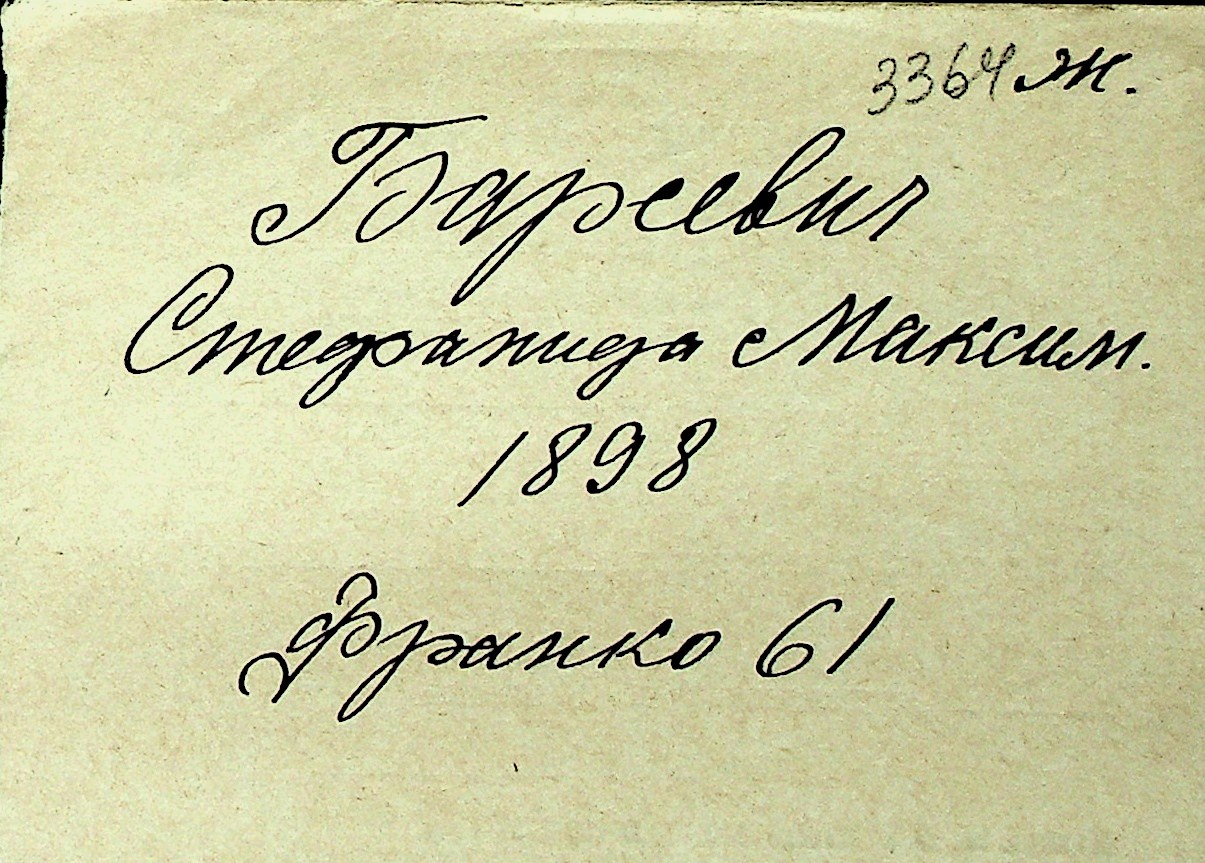 3364 ж.
Барсевич
Стефанида Максим.
1898
Франко 61